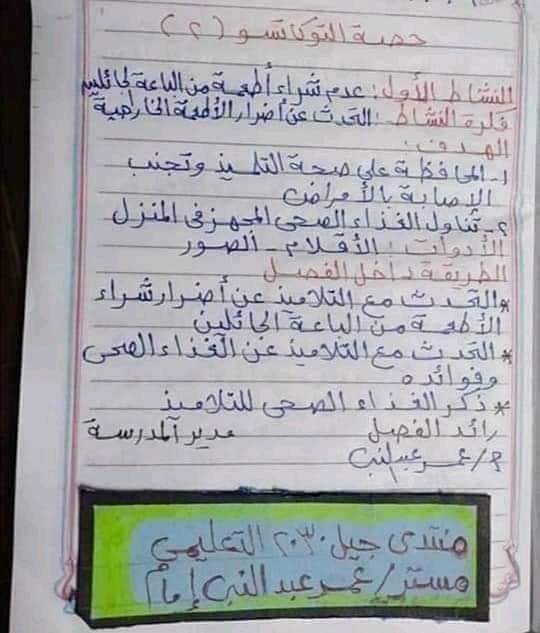 حصة التوكاتسو (٢)
النشاط الأول: عدم شراء أطعمة من الباعة الجائلين
فكرة النشاط: التحدث عن أضرار الأطعمة الخارجية
الهدف:
١- المحافظة على صحة التلميذ وتجنب
الإصابة بالأمراض
٢- تناول الغذاء الصحى المجهز فى المنزل
الأدوات: الأقلام - الصور
الطريقة داخل الفصل
* التحدث مع التلاميذ عن أضرار شراء
الأطعمة من الباعة الجائلين
* التحدث مع التلاميذ عن الغذاء الصحى
وفوائده
* ذكر الغذاء الصحى للتلاميذ
رائد الفصل مدير المدرسة
م/ عمر عبد النبى
منتدى جيل ٢٠٣٠ التعليمي
مستر/ عمر عبد النبى إمام